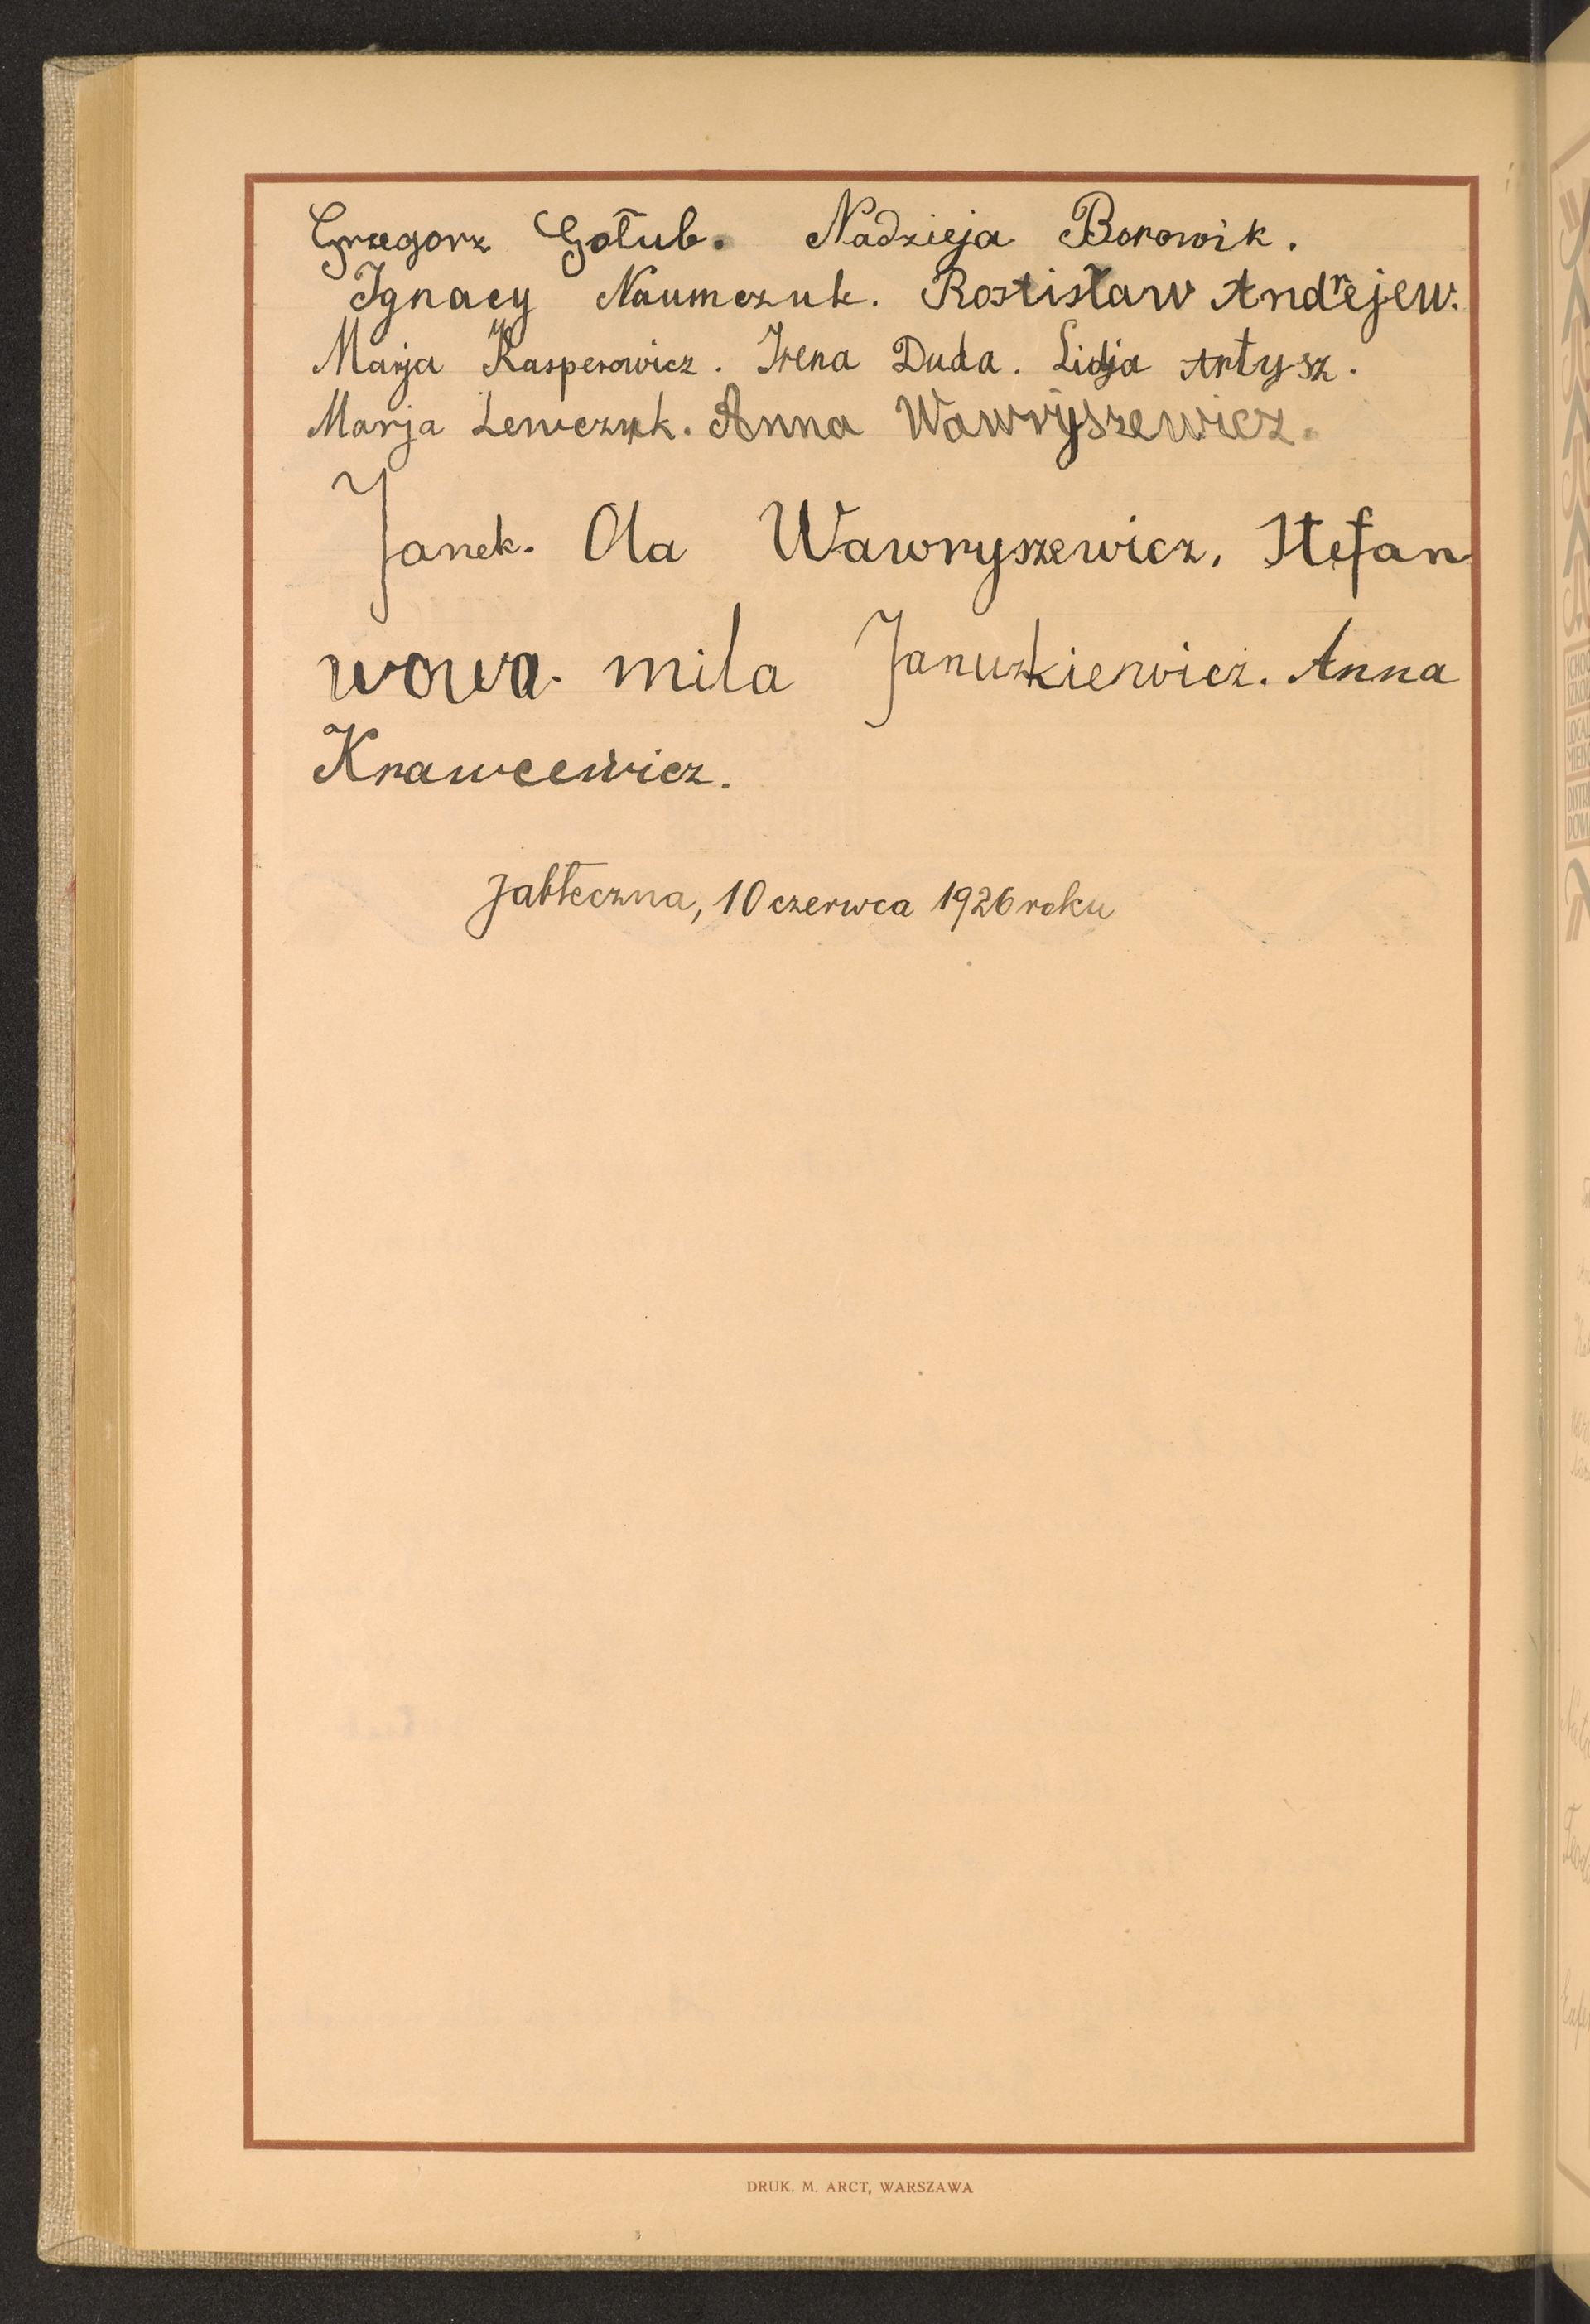 Grzegorz Gołub. Nadzieja Borowik.
Ignacy Naumczuk. Rostisław Andrejew.
Marja Kasperowicz. Irena Duda. Lidja Artysz.
Marja Lewczuk. Anna Wawryszewicz.
Janek. Ola Wawryszewicz, Stefan
wowa. mila Januszkiewicz. Anna
Krawcewicz.
Jabłeczna, 10 czerwca 1926 roku
DRUK. M. ARCT, WARSZAWA